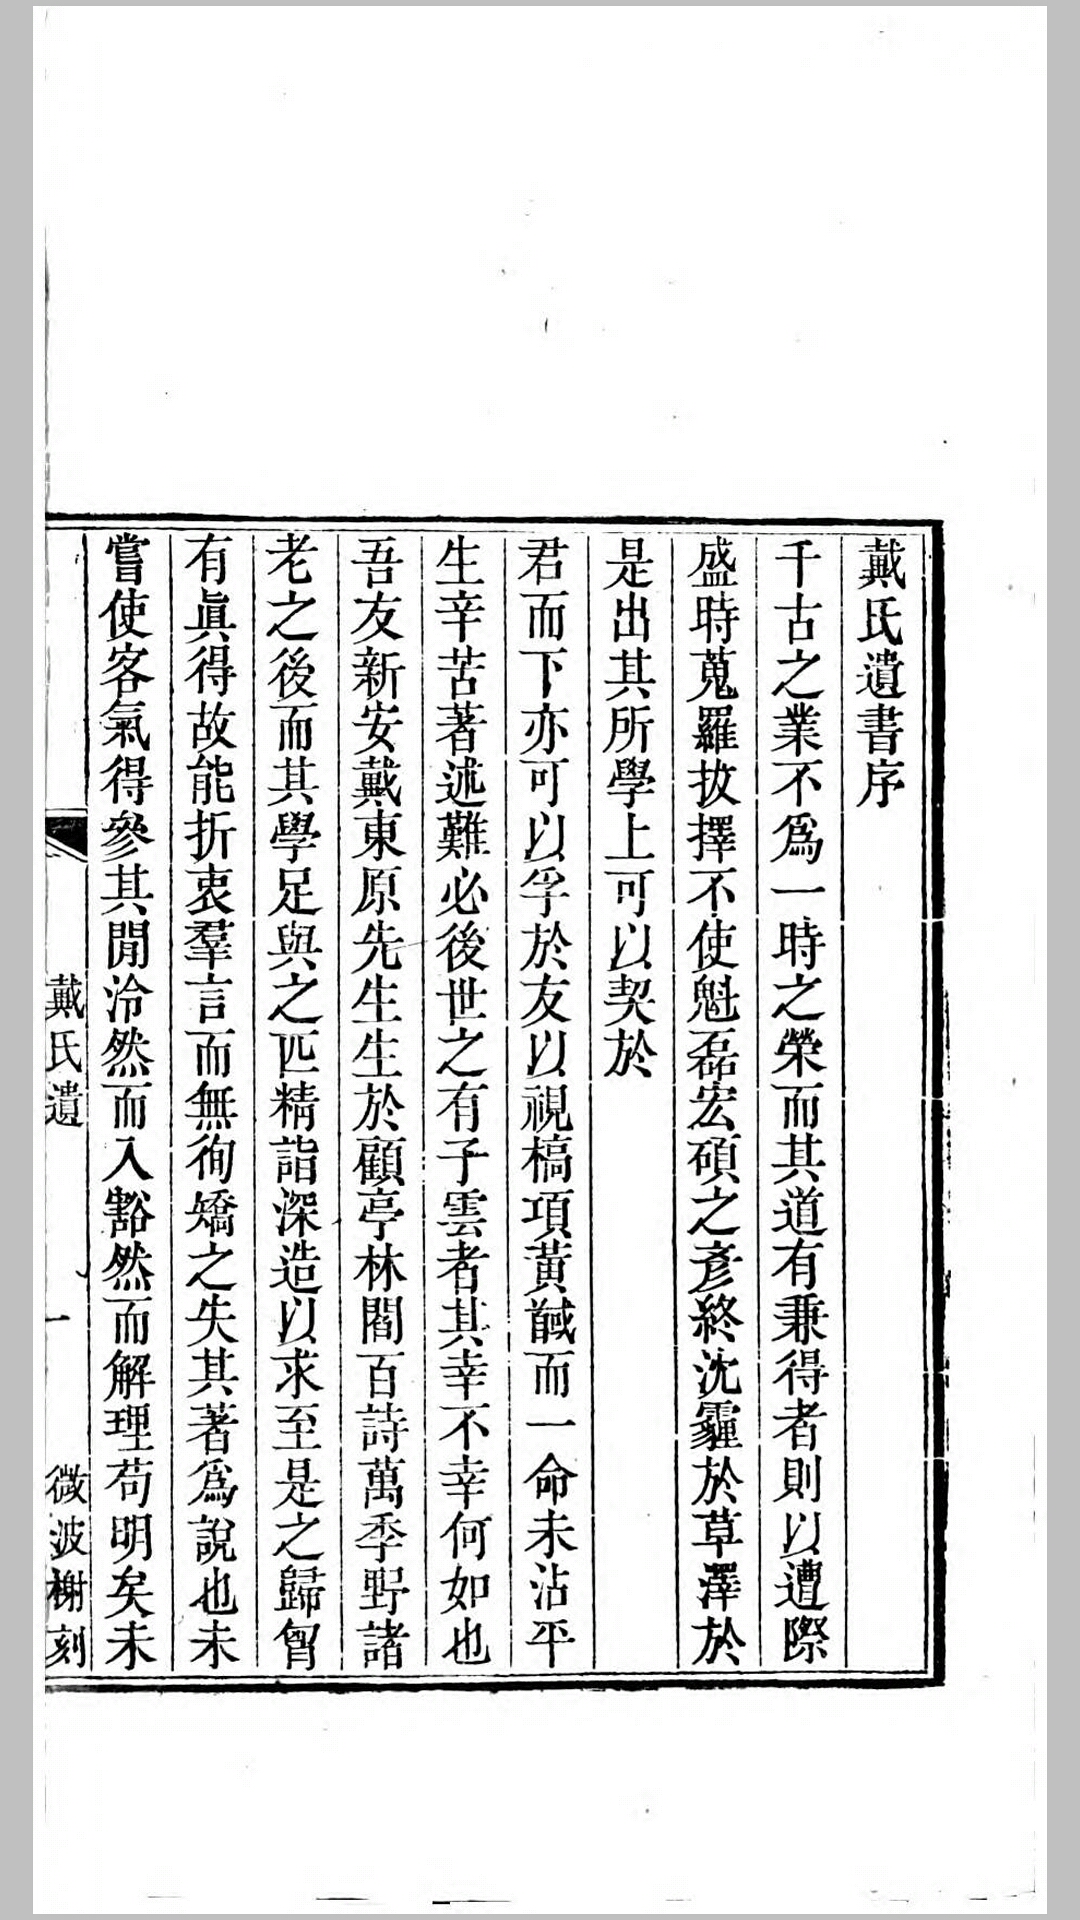 戴氏遺書序
千古之業不爲一時之榮而其道有兼得者則以遭際
盛時蒐羅拔擇不使魁磊宏碩之彥終沈霾於草澤於
是出其所學上可以契於
君而下亦可以孚於友以視槁項黃馘而一命未沾平
生辛苦著述難必後世之有子雲者其幸不幸何如也
吾友新安戴東原先生生於顧亭林閻百詩萬季野諸
老之後而其學足與之匹精詣深造以求至是之歸胷
有眞得故能折衷羣言而無徇矯之失其著爲說也未
嘗使客氣得參其閒泠然而入豁然而解理苟明矣未
戴氏遺 一 微波榭刻